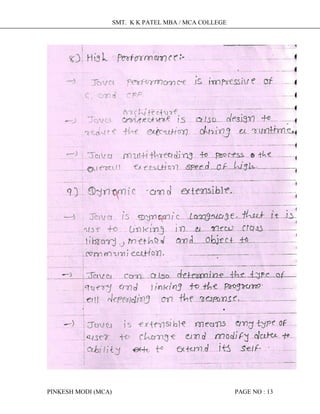 SMT. K K PATEL MBA / MCA COLLEGE
8.) High Performance:-
→) Java Performance is impressive of
C and CPP.
architecture
→) Java is also design to
reduce the execution during a runtime.
→) Java multithreading to process the
overall execution speed of high.
9.) Dynamic and extensible.
→) Java is dynamic language that it is
use to linking in a new class
library, method and object to
communication.
→) Java can also determine the type of
query and linking to the program
all depending on the response.
→) Java is extensible means any type of
user to change and modify data to
ability to extend its self.
PINKESH MODI (MCA)
PAGE NO : 13